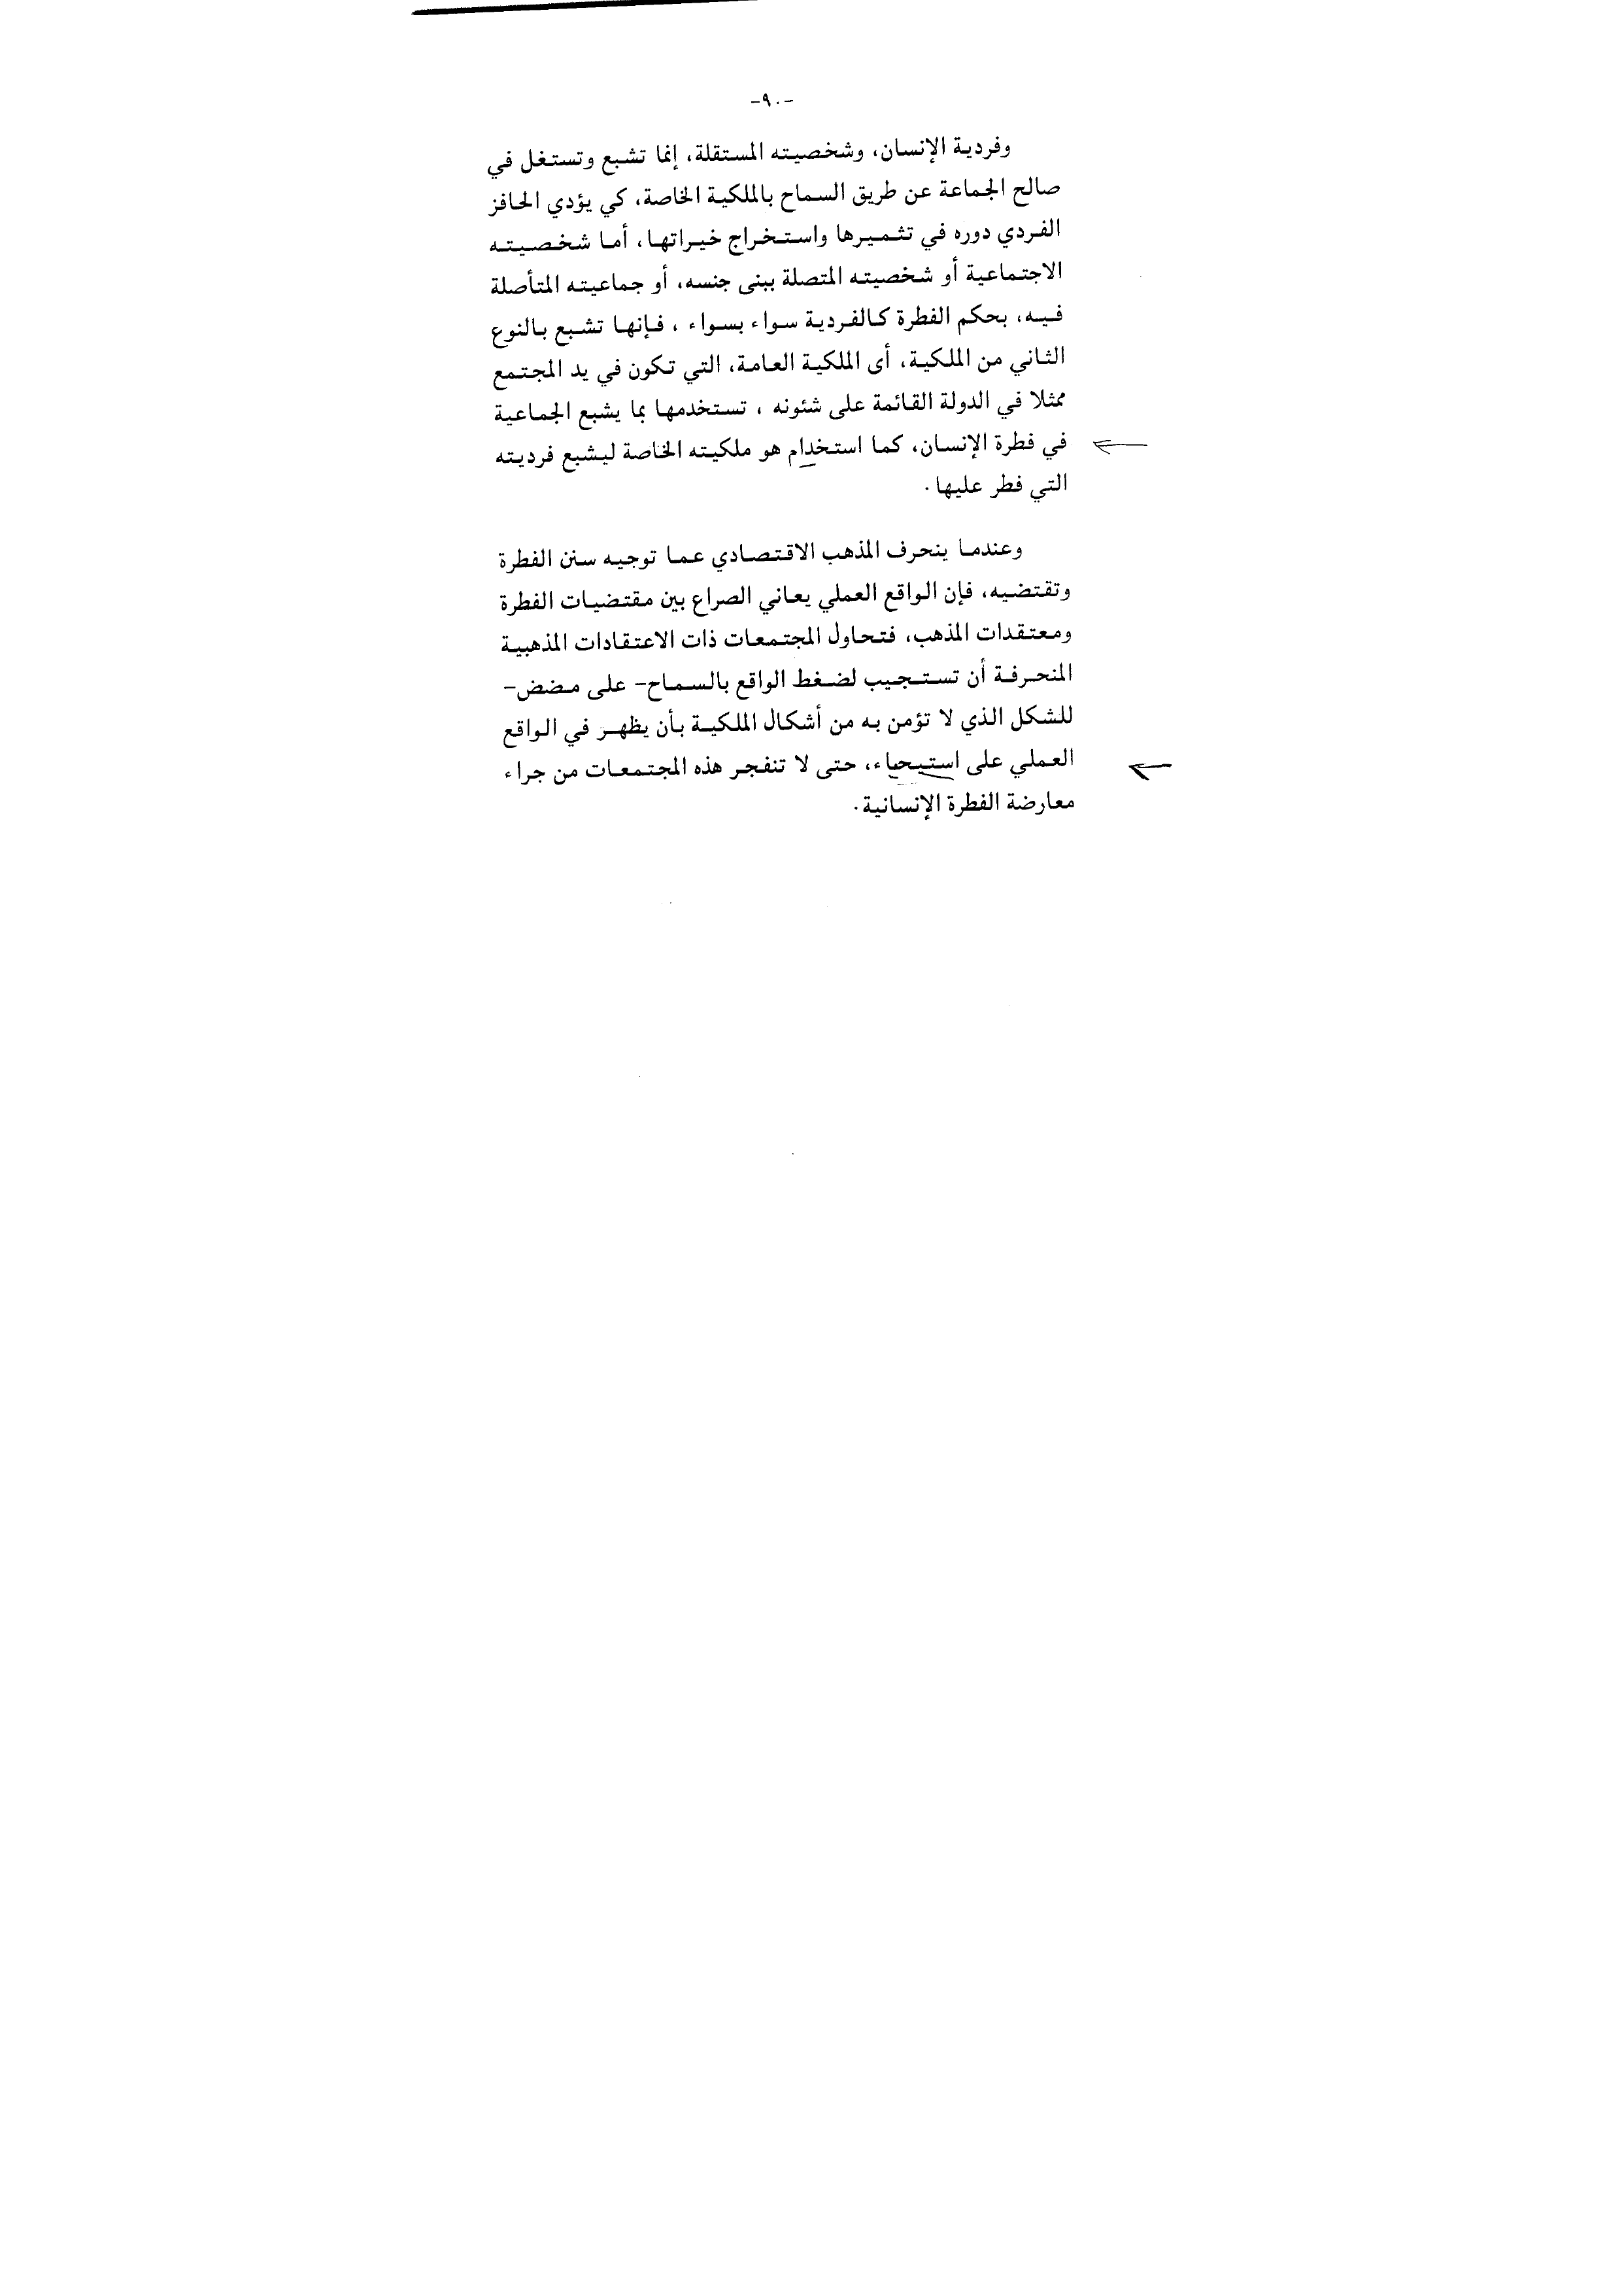 -٩٠-
وفردية الإنسان، وشخصيته المستقلة، إنما تشبع وتستغل في
صالح الجماعة عن طريق السماح بالملكية الخاصة، كي يؤدي الحافز
الفردي دوره في تثميرها واستخراج خيراتها، أما شخصيته
الاجتماعية أو شخصيته المتصلة ببنى جنسه، أو جماعيته المتأصلة
فيه، بحكم الفطرة كالفردية سواء بسواء ، فإنها تشبع بالنوع
الثاني من الملكية، أى الملكية العامة، التي تكون في يد المجتمع
ممثلا في الدولة القائمة على شئونه ، تستخدمها بما يشبع الجماعية
في فطرة الإنسان، كما استخدام هو ملكيته الخاصة ليشبع فرديته
التي فطر عليها.
وعندما ينحرف المذهب الاقتصادي عما توجيه سنن الفطرة
وتقتضيه، فإن الواقع العملي يعاني الصراع بين مقتضيات الفطرة
ومعتقدات المذهب، فتحاول المجتمعات ذات الاعتقادات المذهبية
المنحرفة أن تستجيب لضغط الواقع بالسماح- على مضض-
للشكل الذي لا تؤمن به من أشكال الملكية بأن يظهر في الواقع
العملي على استيحياء، حتى لا تنفجر هذه المجتمعات من جراء
معارضة الفطرة الإنسانية.